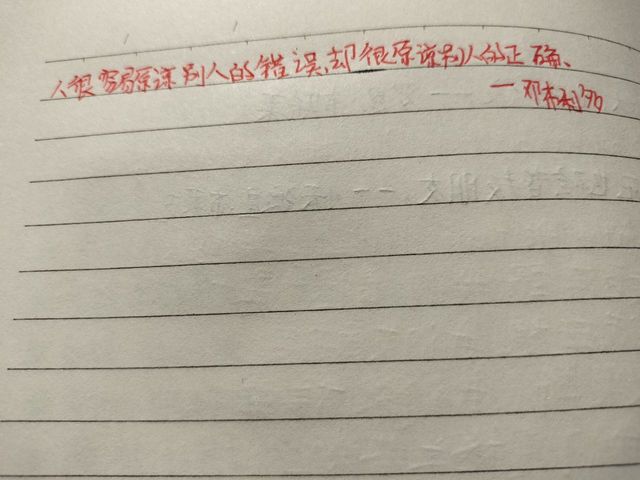 人很容易原谅别人的错误、却很原谅别人的正确、
一 邓布利多